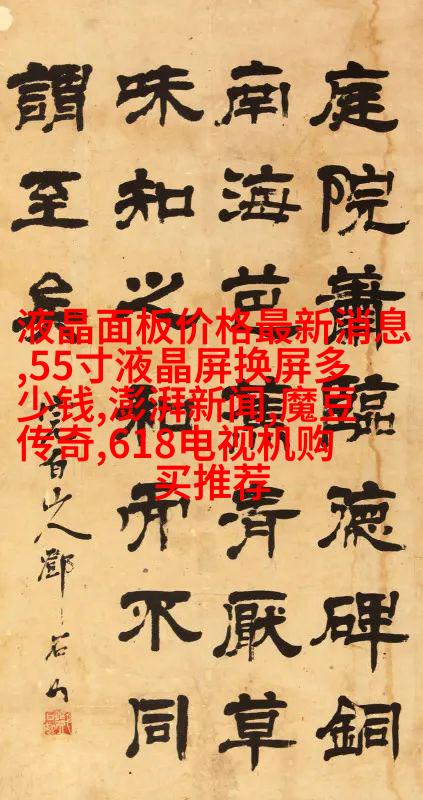 庭院蕭臨德碑銅
南海清厭草
味知之和而不同
謂至矣
完白山人鄧石如
液晶面板价格最新消息
,55寸液晶屏换屏多
少钱,澎湃新闻,魔豆
传奇,618电视机购
买推荐